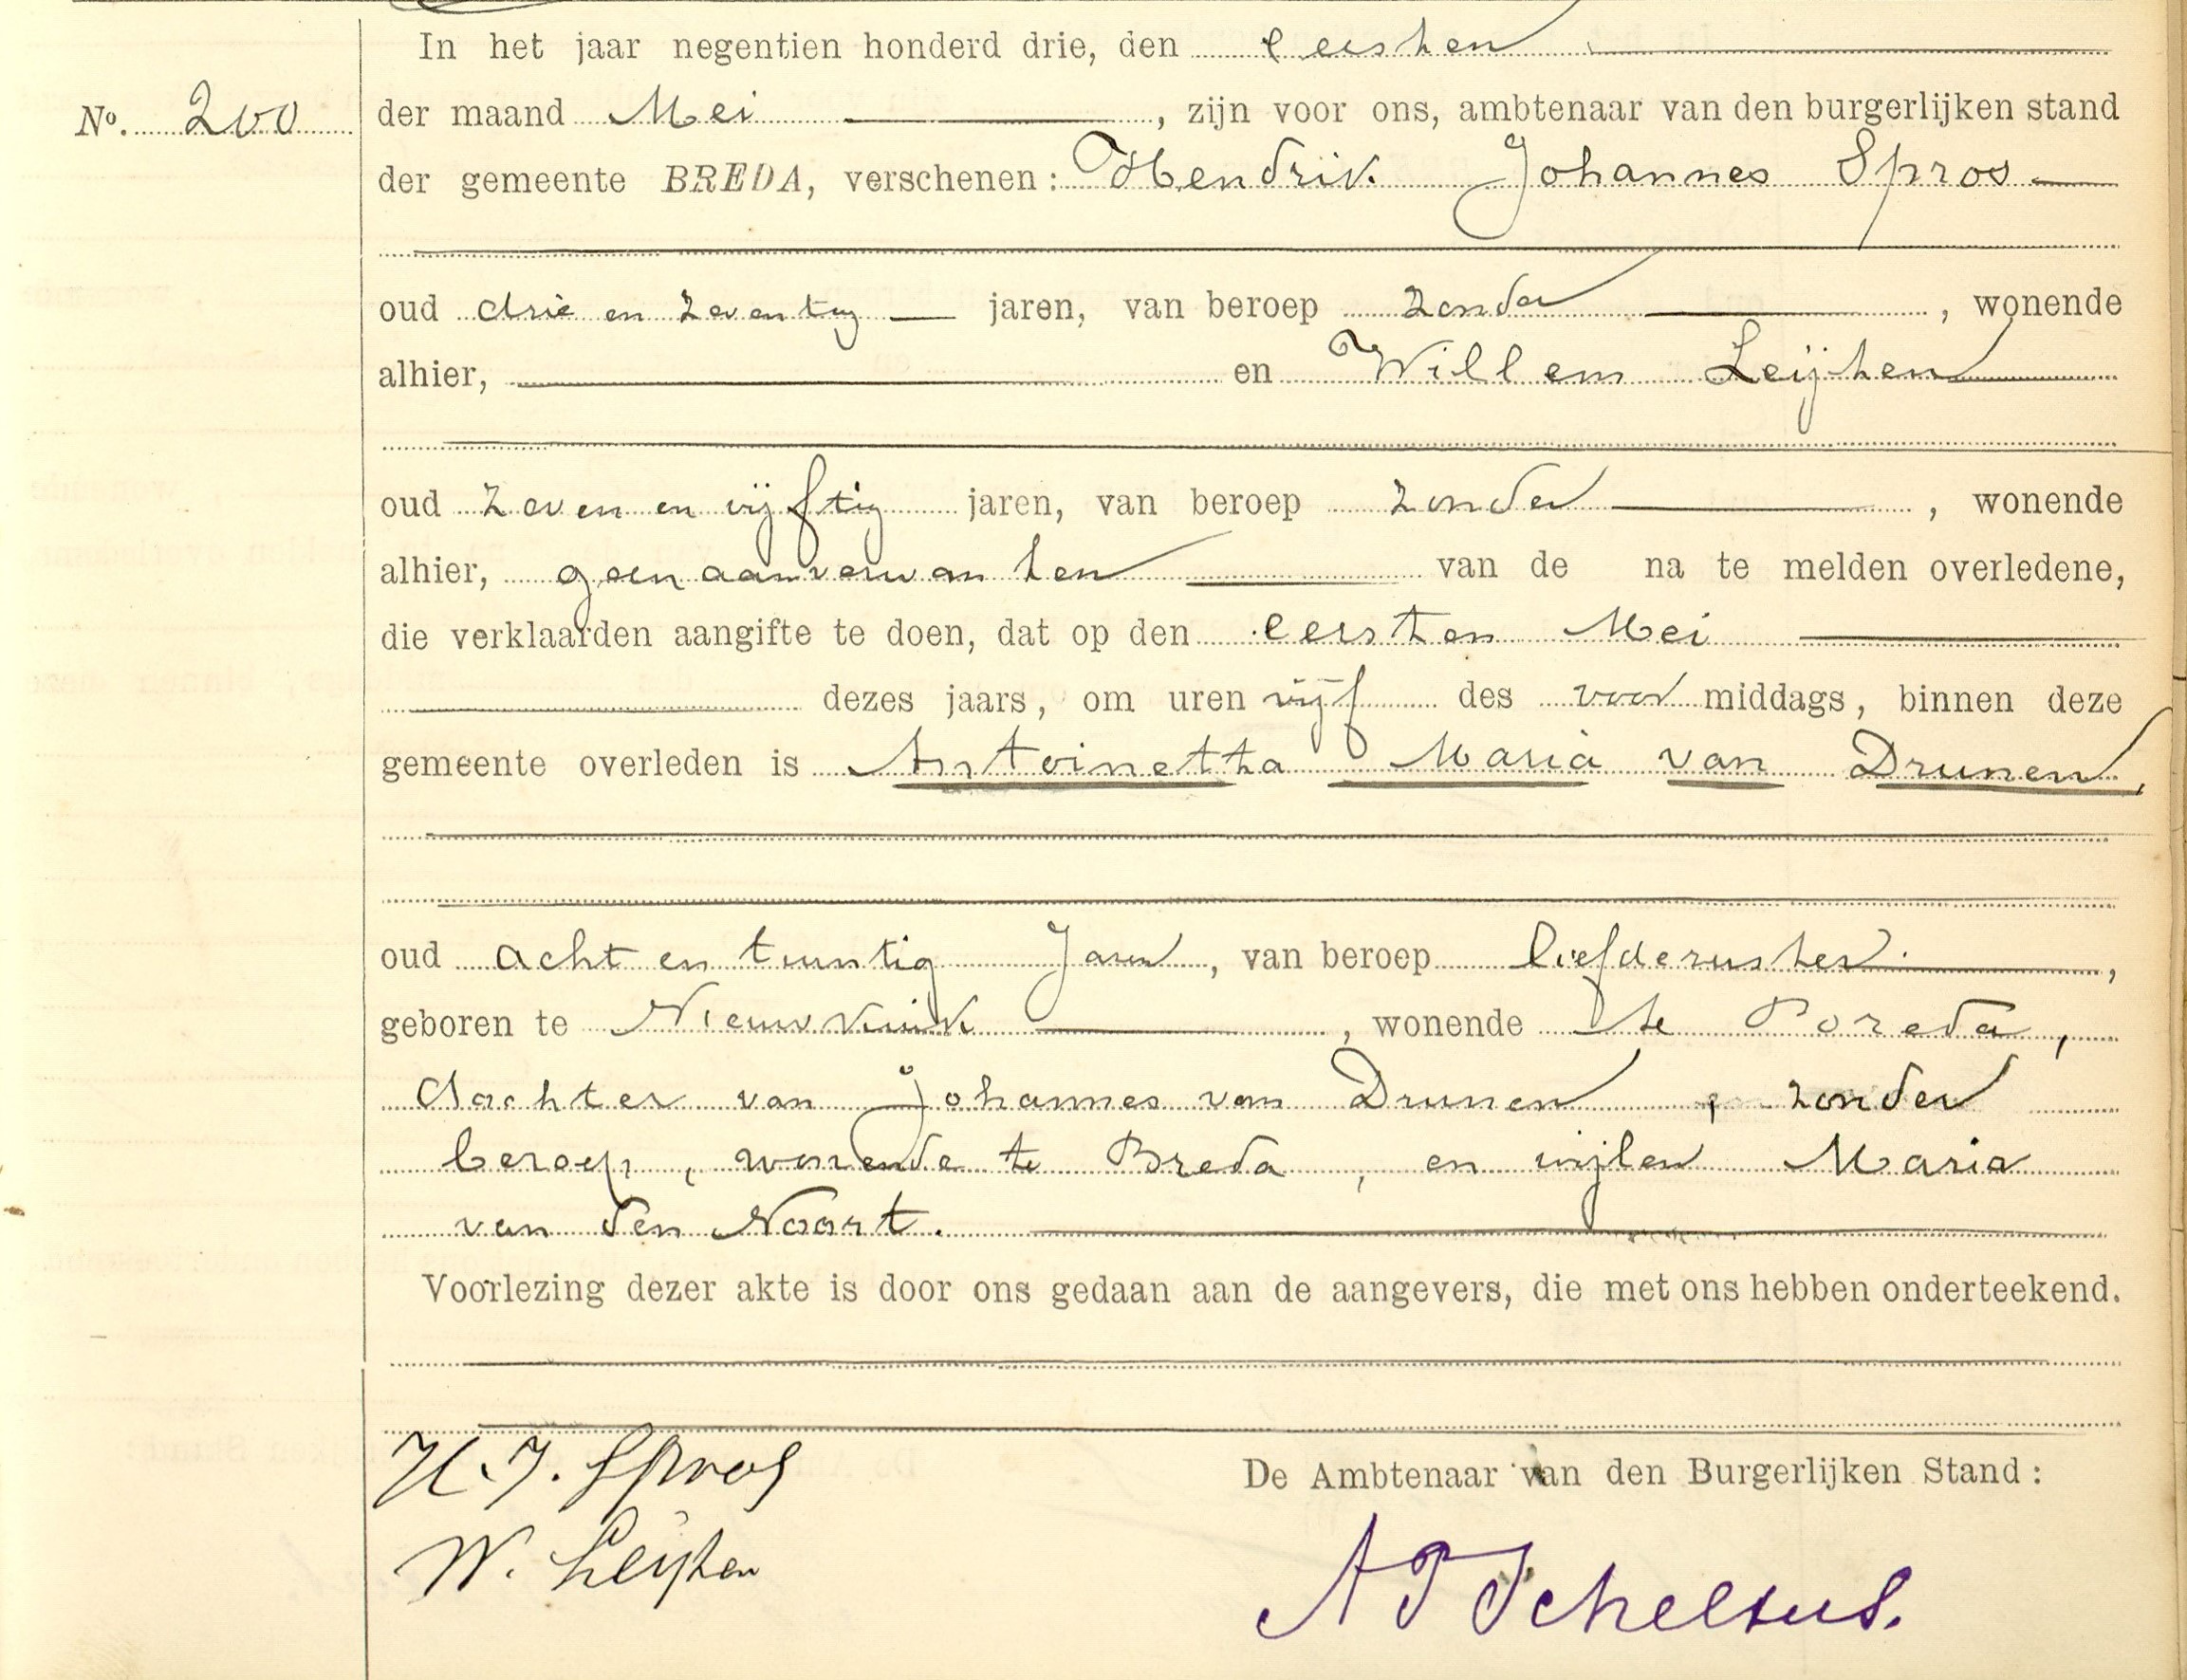 In het jaar negentien honderd drie, den eersten
No. 200 der maand Mei, zijn voor ons, ambtenaar van den burgerlijken stand
der gemeente BREDA, verschenen: Hendrik Johannes Spros
oud drie en zeventig jaren, van beroep zonder, wonende
alhier, en Willem Leijten
oud zeven en vijftig jaren, van beroep zonder, wonende
alhier, geen aanverwanten van de na te melden overledene,
die verklaarden aangifte te doen, dat op den eersten Mei
dezes jaars, om uren vijf des voor middags, binnen deze
gemeente overleden is Antoinetta Maria van Drunen,
oud acht en twintig Jaren, van beroep liefdezuster,
geboren te Nieuwkuik, wonende te Breda,
dochter van Johannes van Drunen, zonder
beroep, wonende te Breda, en wijlen Maria
van den Noort.
Voorlezing dezer akte is door ons gedaan aan de aangevers, die met ons hebben onderteekend.
H. J. Spros
De Ambtenaar van den Burgerlijken Stand:
W. Leijten